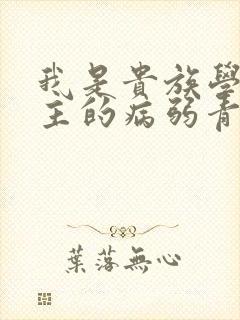 我是貴族學
主的病弱青
葉落無心